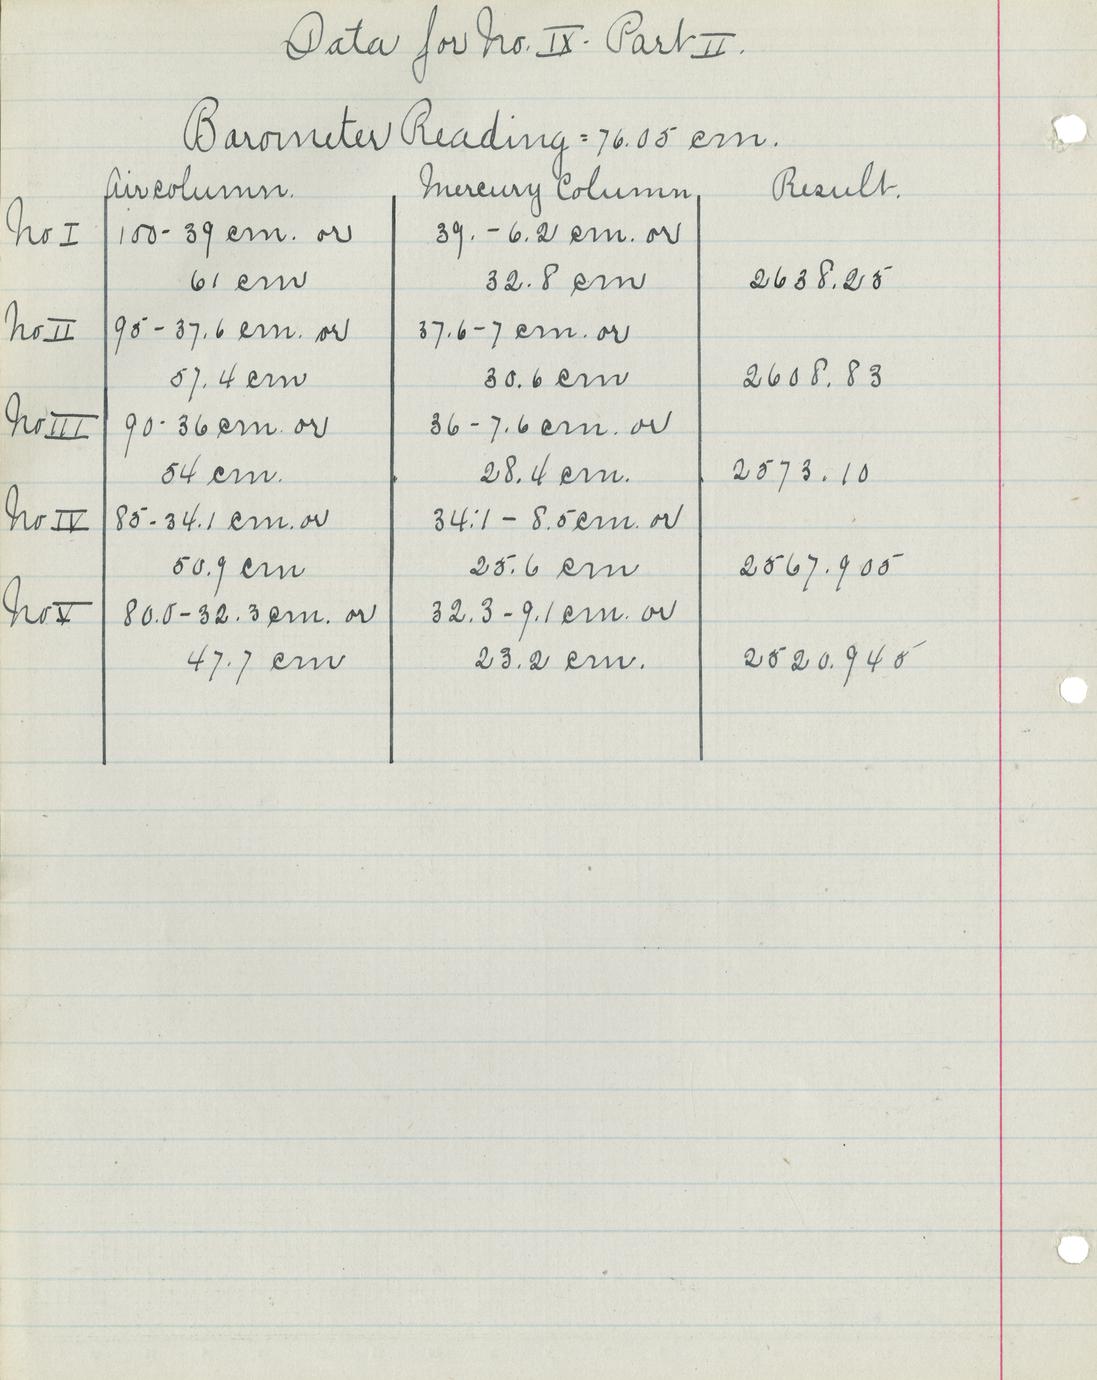 Data for No. IX. Part II.
Barometer Reading = 76.05 cm.
Air column. Mercury Column Result.
No I 100 - 39 cm. or 39. - 6.2 cm. or
61 cm 32.8 cm 2638.25
No II 95 - 37.6 cm. or 37.6 - 7 cm. or
57.4 cm 30.6 cm 2608.83
No III 90 - 36 cm. or 36 - 7.6 cm. or
54 cm. 28.4 cm. 2573.10
No IV 85 - 34.1 cm. or 34.1 - 8.5 cm. or
50.9 cm 25.6 cm 2567.905
No V 80.0 - 32.3 cm. or 32.3 - 9.1 cm. or
47.7 cm 23.2 cm. 2520.945